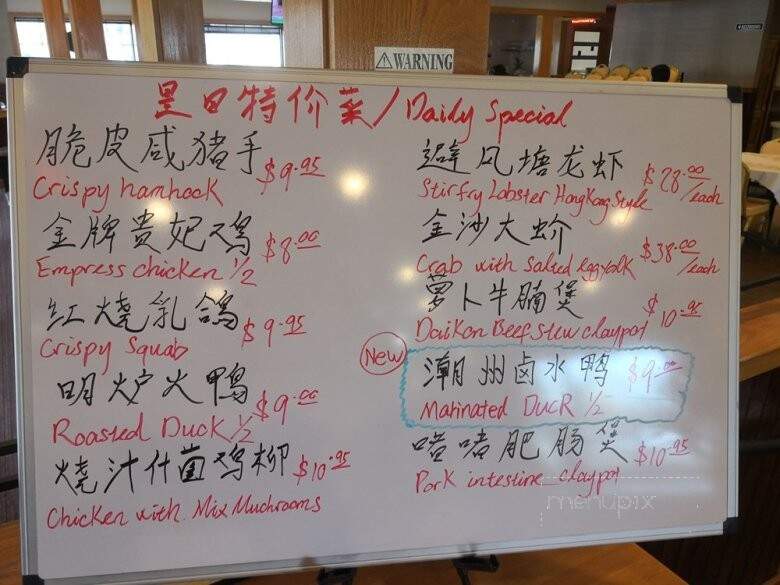 WARNING
星日特价菜/Daily Special
脆皮咸猪手 $9.95
Crispy hamhock
金牌贵妃鸡 $8.00
Empress chicken 1/2
红烧乳鸽 $9.95
Crispy Squab
明炉火鸭 $9.00
Roasted Duck 1/2
烧汁什菌鸡柳 $10.95
Chicken with Mix Muchrooms
避风塘龙虾 $28.00/each
Stirfry Lobster HongKong Style
金沙大蚧 $38.00/each
Crab with salted eggyolk
萝卜牛腩煲 $10.95
Daikon Beef stew claypot
New
潮州卤水鸭 $9.00
Marinated Duck 1/2
啫啫肥肠煲 $10.95
Pork intestine claypot
menupix